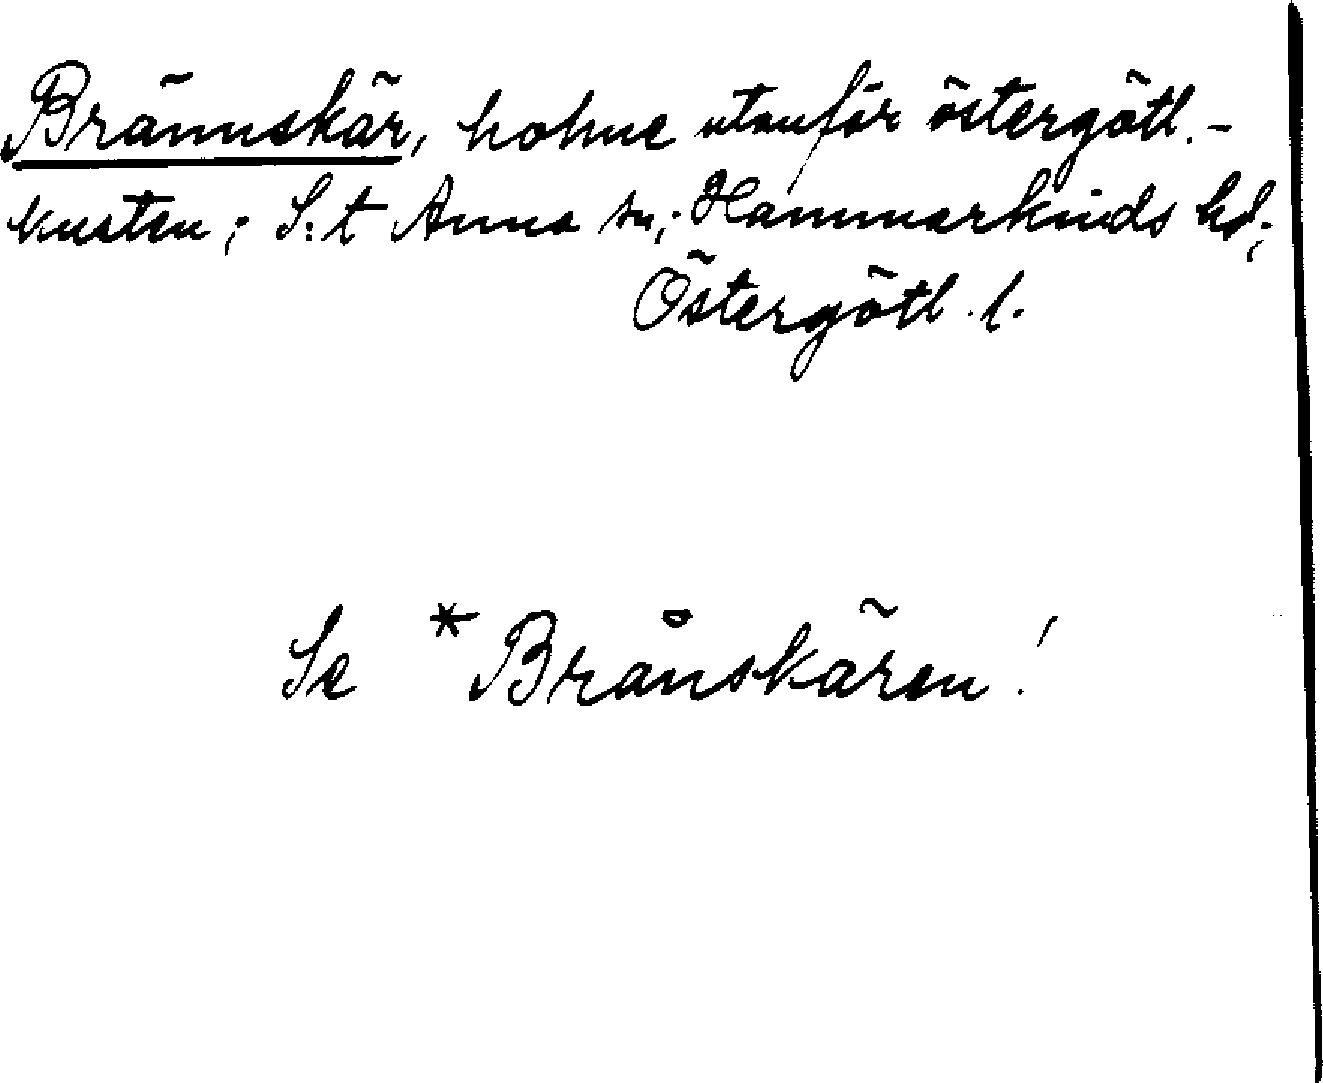 Brännskär, holme utanför östergötl.-
kusten; S:t Anna sn; Hammarkinds hd;
Östergötl. l.
Se *Brånskären!